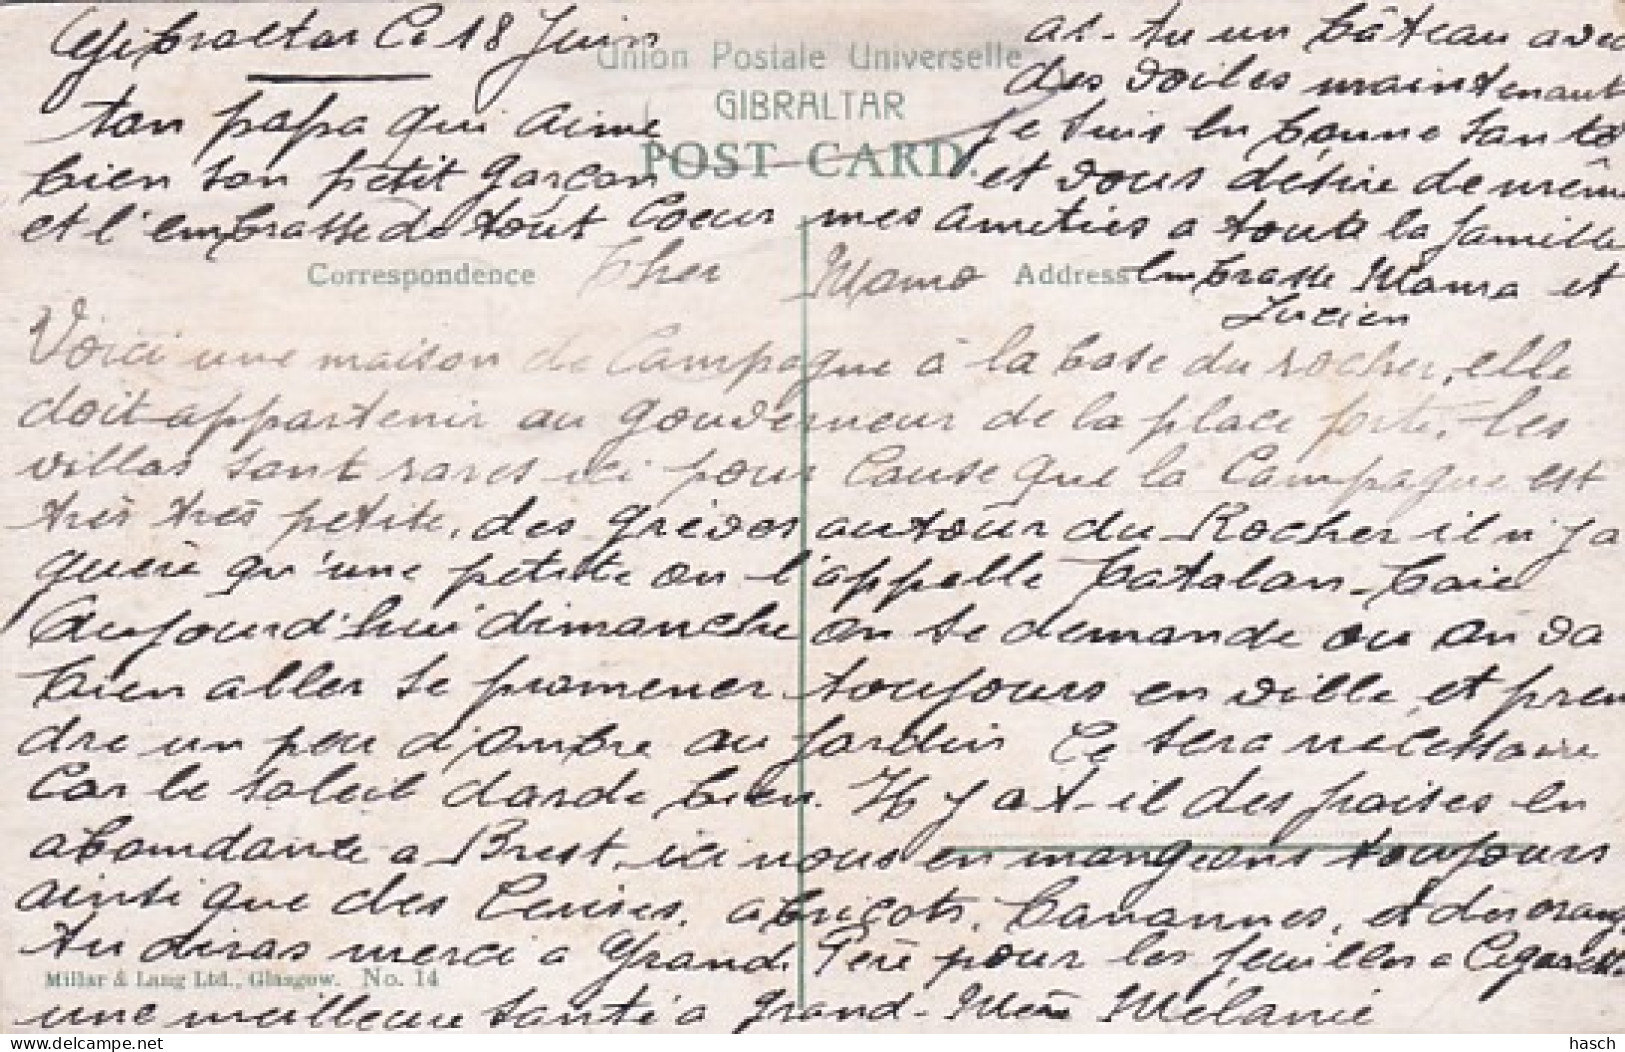 Gibraltar Ce 18 Juin
Union Postale Universelle
GIBRALTAR
POST CARD.
ton papa qui aime
bien son petit garçon
et l'embrasse de tout Coeur
as-tu un bâteau avec
des voiles maintenant
Je suis en bonne santé
et vous désire de même
mes amitiés a toute la famille
embrasse Mama et
Lucien
Correspondence
Address
Cher Momo
Voici une maison de Campagne à la base du rocher, elle
doit appartenir au gouverneur de la place forte, les
villas sont rares ici pour Cause que la Campagne est
très très petite, des grèves autour du Rocher il n'y a
guère qu'une petite on l'appelle Catalan-Baie
Aujourd'hui dimanche on se demande ou on va
bien aller se promener toujours en ville, et pren
dre un peu d'ombre au jardin Ce sera nécessaire
Car le soleil darde bien. Y a t-il des fraises en
abondance a Brest, ici nous en mangeons toujours
ainsi que des Cerises, abricots, bananes, et des orang
tu diras merci a Grand Père pour les feuilles a Cigarette
Millar & Lang Ltd., Glasgow. No. 14
une meilleure santé a Grand-Mère Mélanie
delcampe.net
hasch